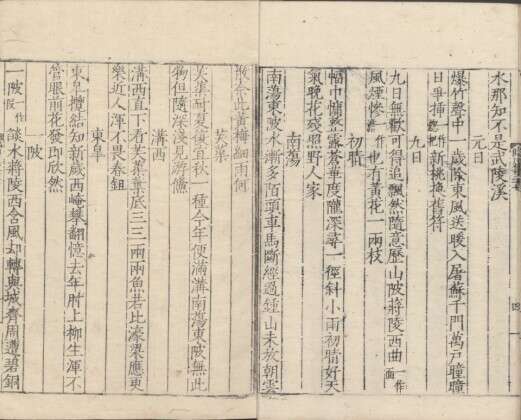 水那知不是武陵溪
元日
爆竹聲中一歲除東風送暖入屠蘇千門萬戶曈曈
日爭插一作總把新桃換舊符
九日
九日無歡可得追飄然隨意歷山陂蔣陵西曲一作面
風煙慘一作也有黃花一兩枝
初晴
幅巾慵整露蒼華度隴深尋一徑斜小雨初晴好天
氣晚花殘照野人家
南蕩
南蕩東陂水漸多陌頭車馬斷經過鍾山未放朝雲
散奈此黃梅細雨何
芙蕖
芙蕖耐夏復宜秋一種今年便滿溝南蕩東陂無此
物但隨深淺見游鯈
溝西
溝西直下看芙蕖葉底三三兩兩魚若比濠梁應更
樂近人渾不畏春鉏
東皋
東皋攬結知新歲西崦攀翻憶去年肘上柳生渾不
管眼前花發即欣然
一陂
一陂一作水蔣陵西含風却轉與城齊周遭碧銅